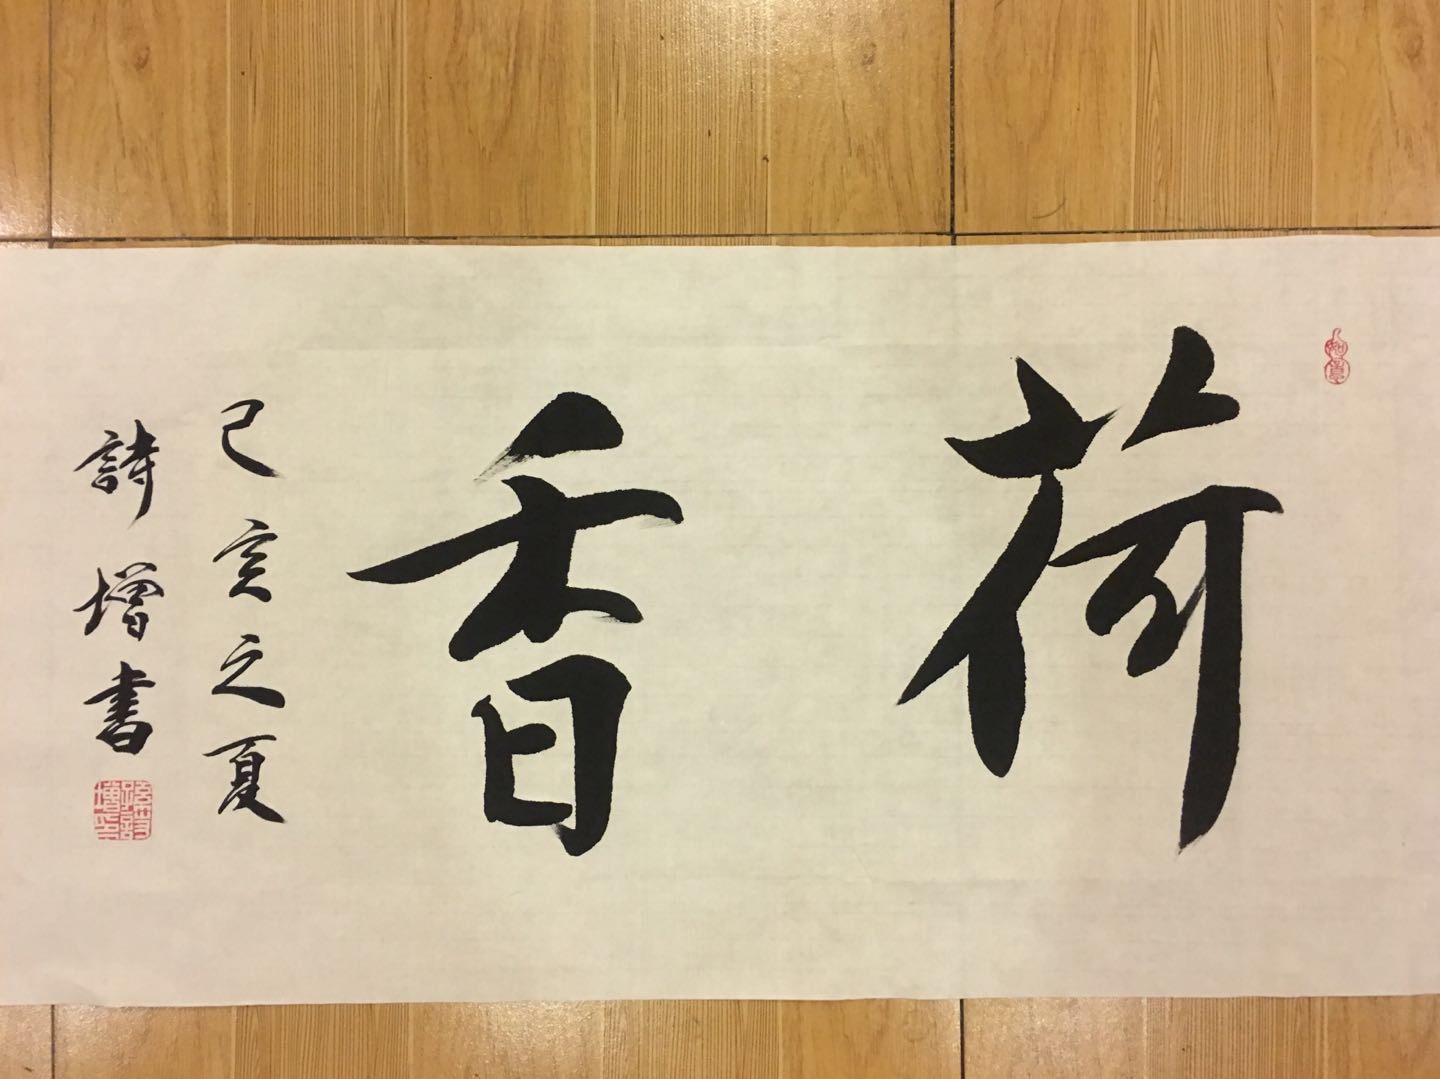 荷香
己亥之夏
詩增書
如意